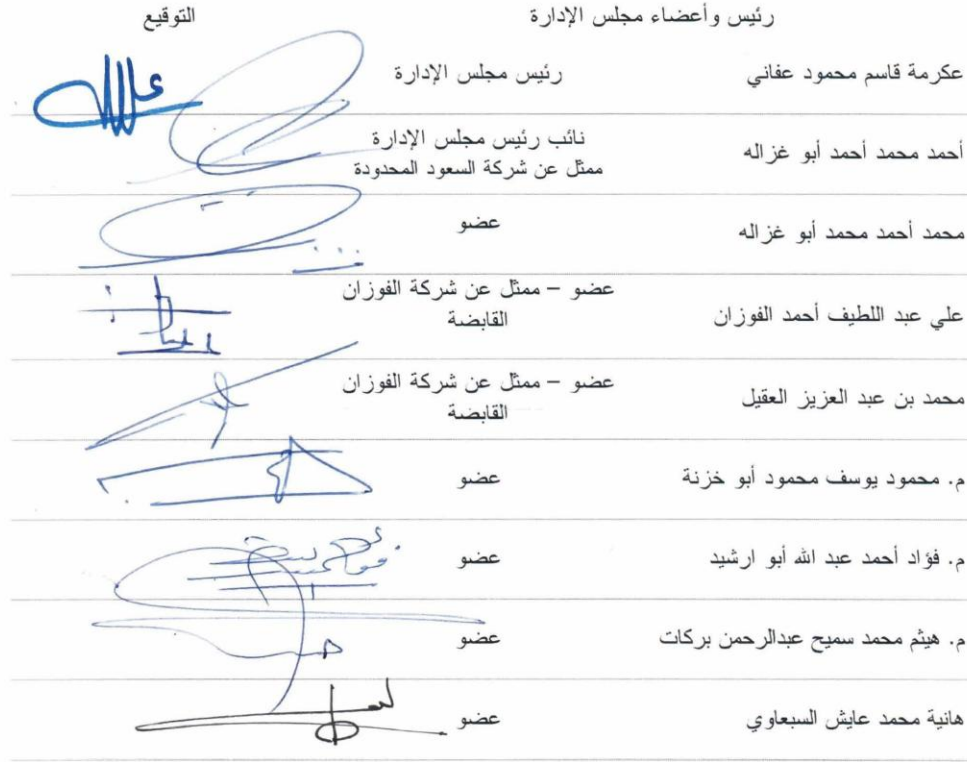 رئيس وأعضاء مجلس الإدارة التوقيع
عكرمة قاسم محمود عفاني رئيس مجلس الإدارة
أحمد محمد أحمد أبو غزاله نائب رئيس مجلس الإدارة
ممثل عن شركة السعود المحدودة
محمد أحمد محمد أبو غزاله عضو
علي عبد اللطيف أحمد الفوزان عضو – ممثل عن شركة الفوزان
القابضة
محمد بن عبد العزيز العقيل عضو – ممثل عن شركة الفوزان
القابضة
م. محمود يوسف محمود أبو خزنة عضو
م. فؤاد أحمد عبد الله أبو ارشيد عضو
م. هيثم محمد سميح عبدالرحمن بركات عضو
هانية محمد عايش السبعاوي عضو